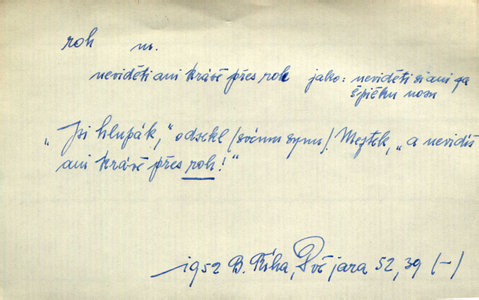 roh m.
neviděti ani krávě přes roh jako: neviděti si ani na
špičku nosu
„Jsi hlupák,“ odsekl (svému synu) Meztek, „a nevidíš
ani krávě přes roh!“
1952 B. Říha, Dvě jara 52, 39 (–)